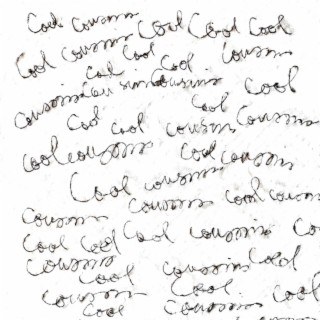 Cool cousins Cool Cool Cool
Cool cousins Cool Cool cousins
Cool cousins Cool
cousins cousins Cool
Cool Cool cousins Cousins
cool cousins Cool cousins
Cool cousins
cousins Cool cousins
Cousins
Cool Cool Cool cousins
Cousins cousins Cool
Cool Cool
cousins Cool
Cool cousins Cool